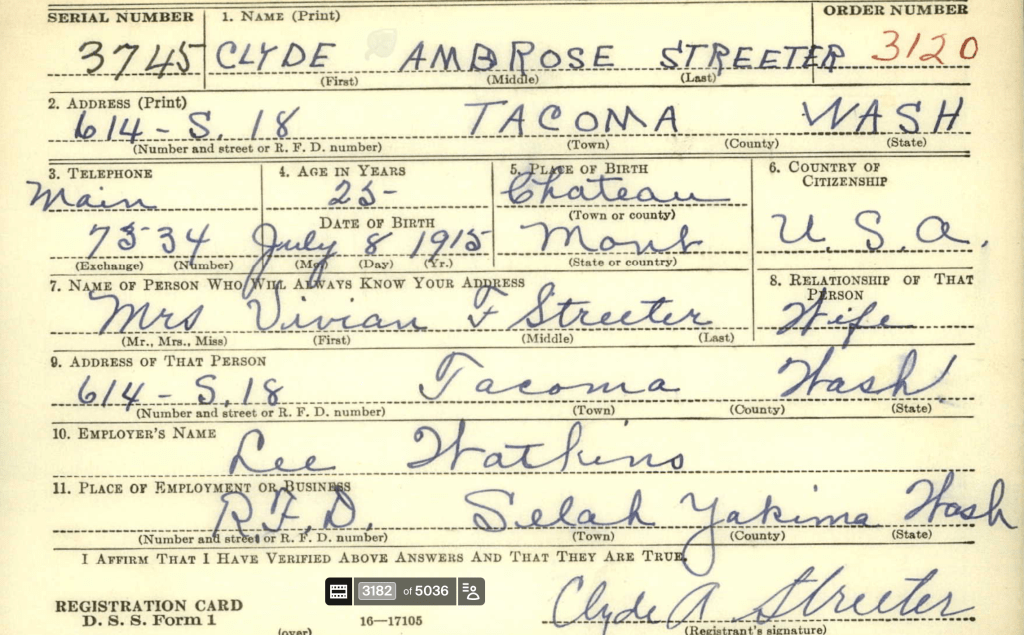 SERIAL NUMBER 1. NAME (Print) ORDER NUMBER
3745 CLYDE AMBROSE STREETER 3120
(First) (Middle) (Last)
2. ADDRESS (Print)
614 - S. 18 TACOMA WASH
(Number and street or R. F. D. number) (Town) (County) (State)
3. TELEPHONE 4. AGE IN YEARS 5. PLACE OF BIRTH 6. COUNTRY OF
CITIZENSHIP
Main 25 Chateau
DATE OF BIRTH (Town or county)
7534 July 8 1915 Mont U. S. A.
(Exchange) (Number) (Mo.) (Day) (Yr.) (State or country)
7. NAME OF PERSON WHO WILL ALWAYS KNOW YOUR ADDRESS 8. RELATIONSHIP OF THAT
PERSON
Mrs Vivian F Streeter Wife
(Mr., Mrs., Miss) (First) (Middle) (Last)
9. ADDRESS OF THAT PERSON
614 - S. 18 Tacoma Wash.
(Number and street or R. F. D. number) (Town) (County) (State)
10. EMPLOYER'S NAME
Lee Watkins
11. PLACE OF EMPLOYMENT OR BUSINESS
R.F.D. Selah Yakima Wash
(Number and street or R. F. D. number) (Town) (County) (State)
I AFFIRM THAT I HAVE VERIFIED ABOVE ANSWERS AND THAT THEY ARE TRUE.
3182 of 5036
REGISTRATION CARD Clyde A Streeter
D. S. S. Form 1 16—17105
(over) (Registrant's signature)